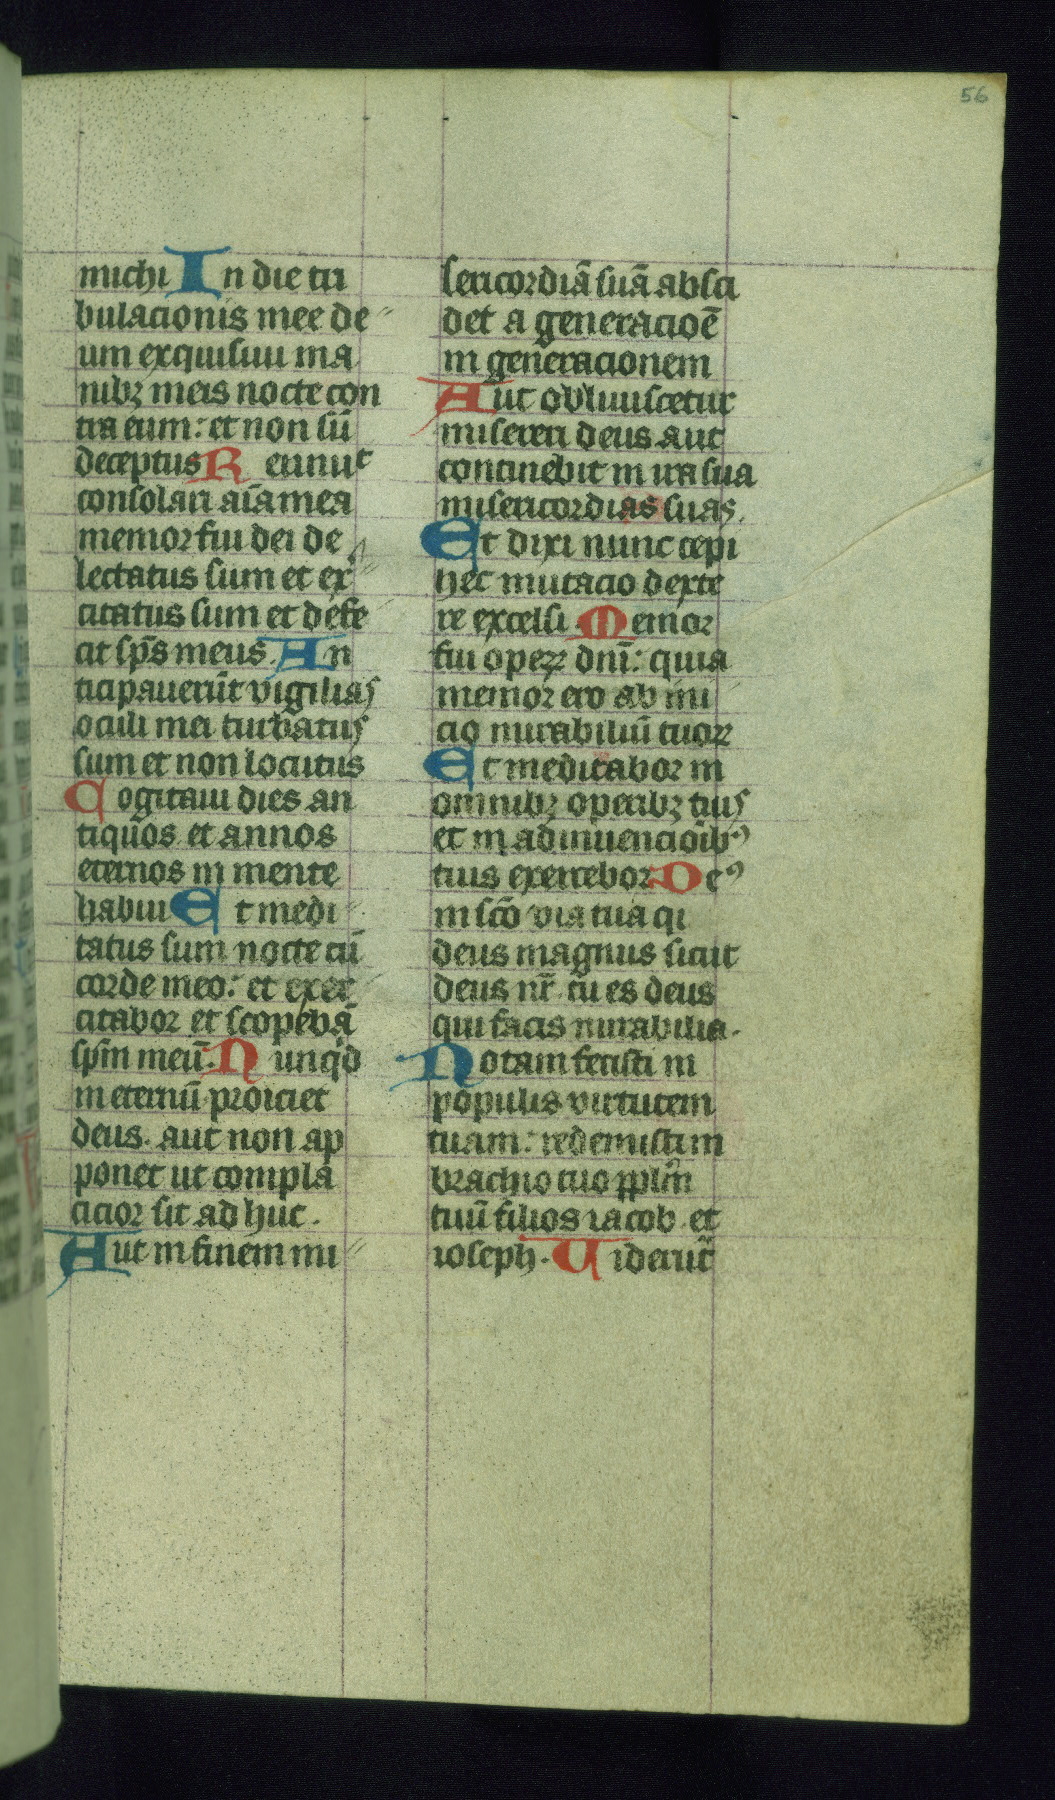 56
michi In die tri
bulacionis mee de
um exquisiui ma
nibꝫ meis nocte con
tra eum: et non sū
deceptus Rennuit
consolari aīa mea
memor fui dei de
lectatus sum et ex
citatus sum et defe
cit sp̄s meus. An
ticipauerūt vigilias
oculi mei turbatus
sum et non locutus
Cogitaui dies an
tiquos et annos
eternos in mente
habui Et medi
tatus sum nocte cū
corde meo: et exer
citabor et scopebā
sp̄m meū. Nunqͥd
in eternū proiciet
deus. aut non ap
ponet ut compla
cicior sit adhuc.
Aut in finem mi
sericordiā suā absci
det a generacioē
in generacionem
Aut obliuiscetur
misereri deus aut
continebit in ira sua
misericordias suas.
Et dixi nunc cepi
hec mutacio dexte
re excelsi. Memor
fui operꝝ dn̄i: quia
memor ero ab ini
cio mirabiliū tuorꝝ
Et meditabor in
omnibꝫ operibꝫ tuis
et in adinuencioīb⁹
tuis exercebor De⁹
in sc̄o via tua qi
deus magnus sicut
deus nr̄ tu es deus
qui facis mirabilia.
Notam fecisti in
populis virtutem
tuam: redemisti in
brachio tuo pplm̄
tuū filios iacob et
ioseph. Uiderūt